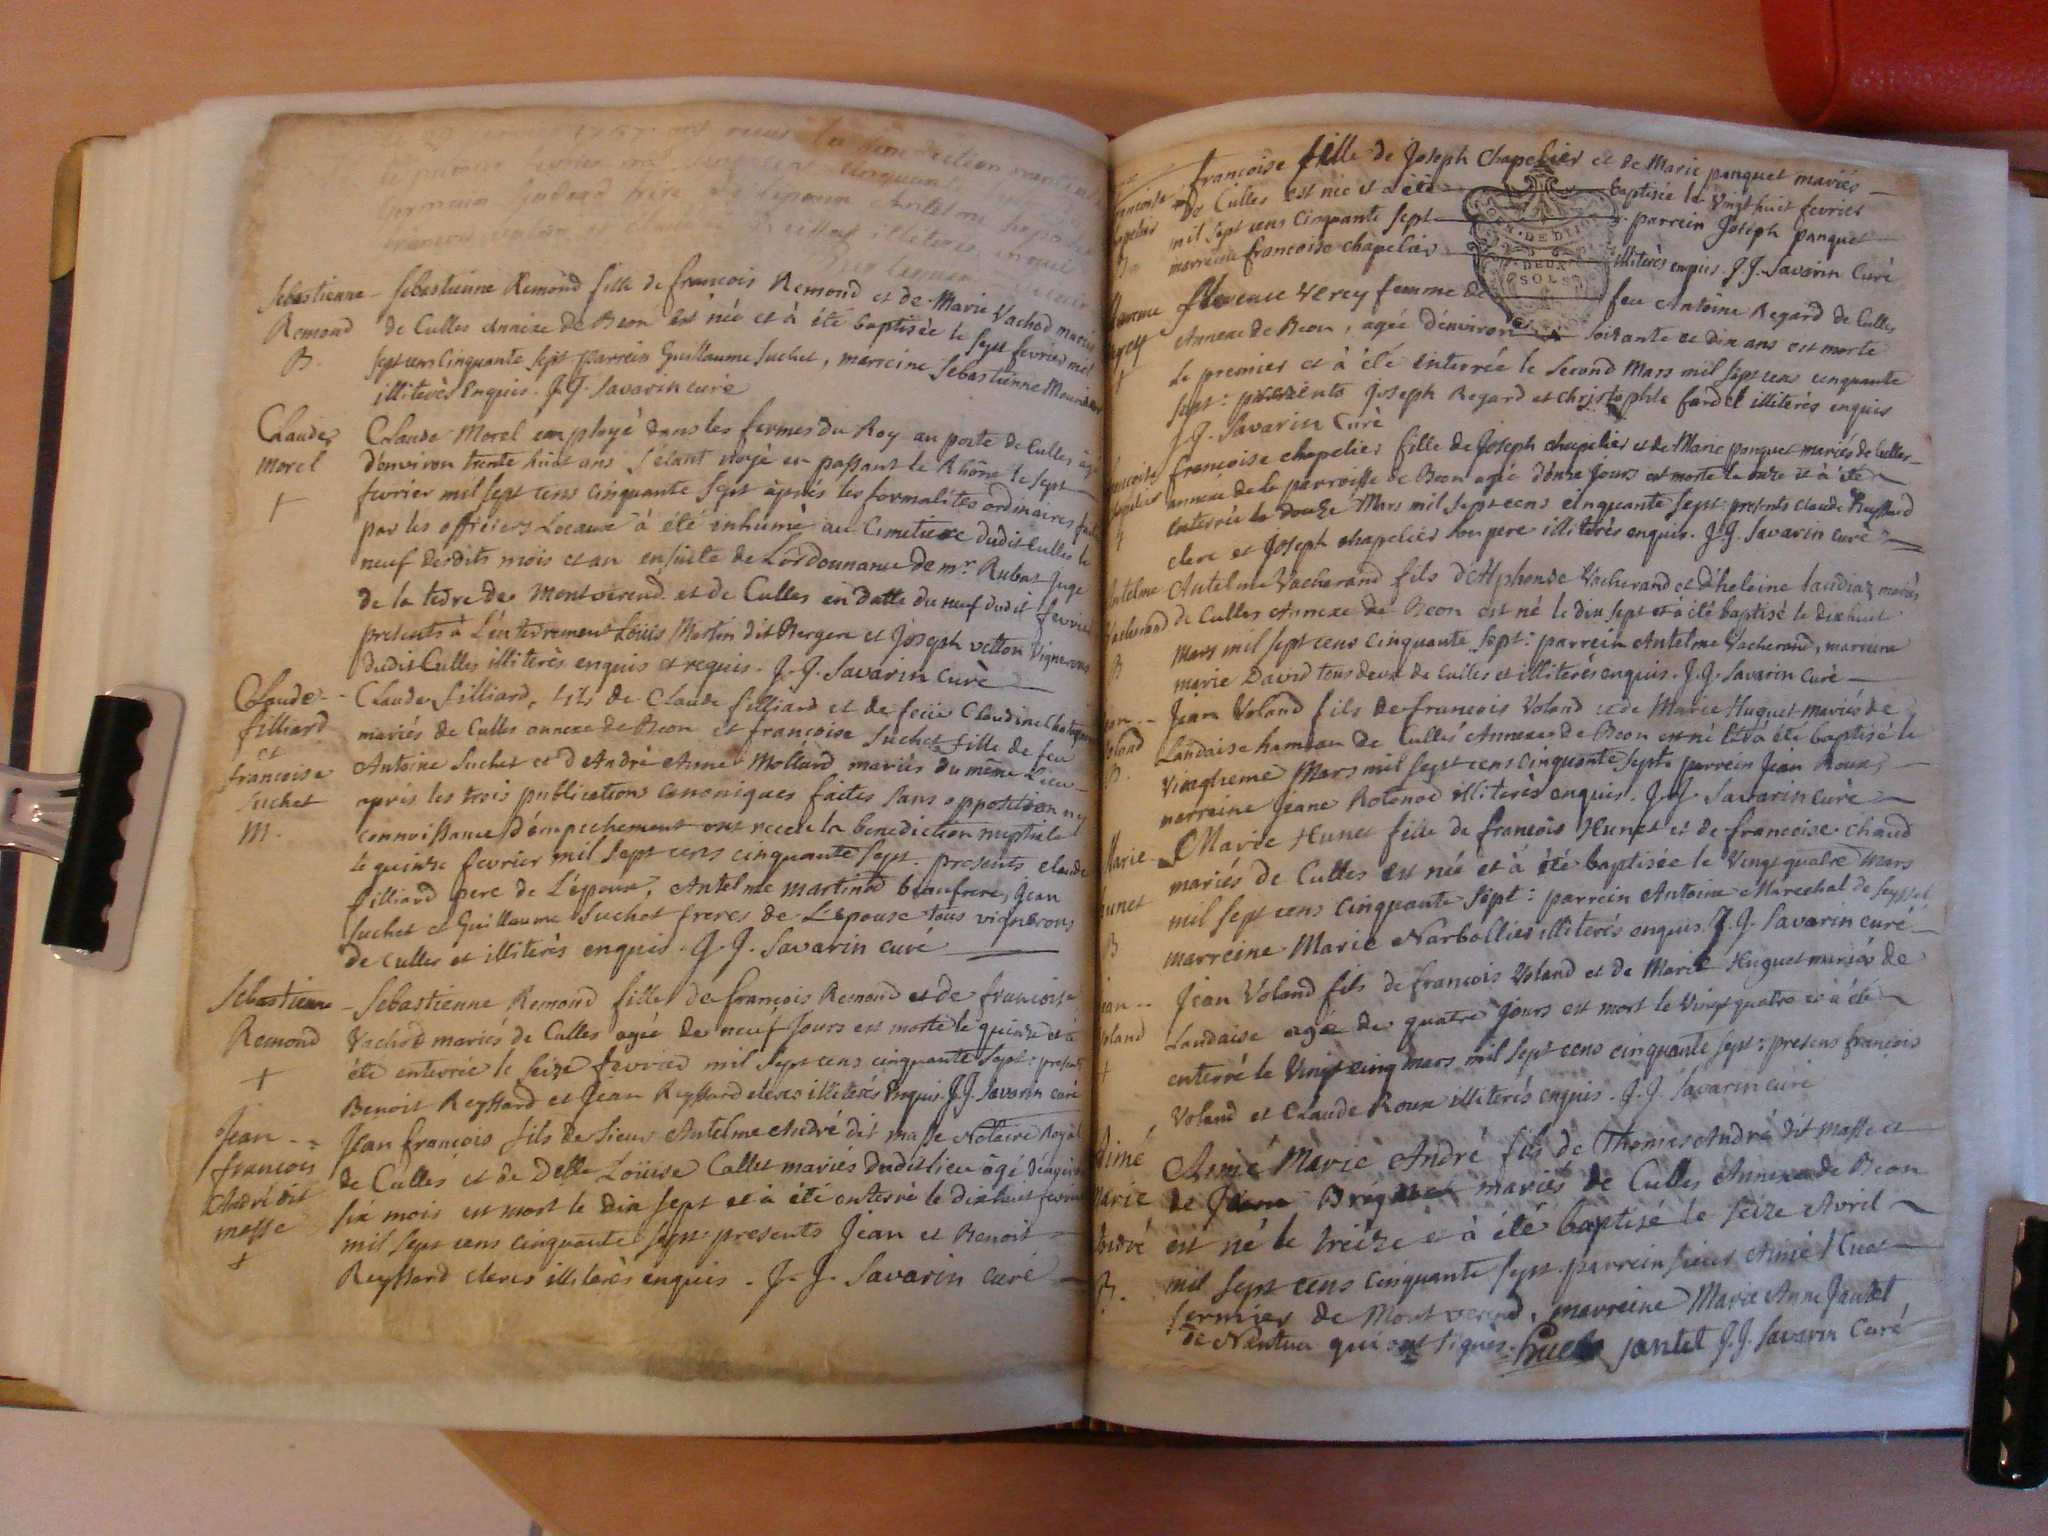 1757 ont reçus la benediction nuptiale
le premier fevrier mil sept cens cinquante
Sebastienne
Remond
B.
Sebastienne Remond fille de françois Remond et de Marie Vachod mariés
de Culles Annexe de Beon est née et à été baptisée le sept fevrier mil
sept cens cinquante sept parrein Guillaume Suchet, marreine Sebastienne
illiterès enquis. J.J. Savarin curé
Claude
Morel
†
Claude Morel employé dans les fermes du Roy au poste de Culles âgé
d'environ trente huit ans s'étant noyé en passant le Rhône le sept
fevrier mil sept cens cinquante sept après les formalités ordinaires faites
par les officiers Locaux à été inhumé au Cimetiere dudit Culles le
neuf desdits mois et an ensuite de L'ordonnance de mr. Rubat Juge
de la terre de Montverend et de Culles en datte du neuf dudit fevrier
presents à L'enterrement Loüis Martin dit Bergere et Joseph vetton Vignerons
dudit Culles illiterès enquis et requis. J.J. Savarin Curé
Claude
filliard
et
françoise
Suchet
M.
Claude filliard, fils de Claude filliard et de feüe Claudine
mariés de Culles annexe de Beon et françoise Suchet fille de feu
Antoine Suchet et d'André Anne Mollard mariés du même Lieu
après les trois publications canoniques faites sans opposition ny
connoissance d'empechement ont receu la benediction nuptiale
le quinze fevrier mil sept cens cinquante sept. presents claude
filliard pere de L'époux, Antelme martinod beaufrere, Jean
Suchet et Guillaume Suchet freres de L'épouse tous vignerons
de Culles et illiterès enquis. J.J. Savarin curé
Sebastienne
Remond
†
Sebastienne Remond fille de françois Remond et de françoise
Vachod mariés de Culles agée de neuf Jours est morte le quinze et à
été enterrée le seize fevrier mil sept cens cinquante sept: presents
Benoit Reyssard et Jean Reyssard clercs illiterés enquis J.J. Savarin curé
Jean
françois
André dit
masse
†
Jean françois fils de Sieur Antelme André dit masse Notaire Royal
de Culles et de Delle Loüise Callet mariés dudit lieu âgé d'environ
six mois est mort le dix sept et à été enterré le dixhuit fevrier
mil sept cens cinquante sept presents Jean et Benoit
Reyssard clercs illiterès enquis. J.J. Savarin curé
françoise
chapelier
B
françoise fille de Joseph Chapelier et de Marie panquet mariés
de Culles est née et a été baptisée le Vingt huit fevrier
mil sept cens Cinquante sept parrein Joseph panquet
marreine francoise chapelier illiterès enquis. J.J. Savarin Curé
DEUX
SOLS
florence
verey
†
florence verey femme de feu Antoine Regard de Culles
Annexe de Beon, agée d'environ soixante et dix ans est morte
le premier et à été enterrée le second Mars mil sept cens cinquante
sept: presents Joseph Regard et christophle fardel illiterès enquis
J.J. Savarin Curé
françoise
chapelier
†
françoise chapelier fille de Joseph chapelier et de Marie panquet mariés de Culles
annexe de la parroisse de Beon agée d'onze Jours est morte le onze et à été
enterrée le douze Mars mil sept cens cinquante sept: presents claude Reyssard
clerc et Joseph chapelier son pere illiterès enquis. J.J. Savarin curé
Antelme
Vacherand
B
Antelme Vacherand fils d'Alphonse Vacherand et d'heleine landraz mariés
de Culles Annexe de Beon est né le dix sept et à été baptisé le dixhuit
Mars mil sept cens cinquante sept: parrein Antelme Vacherand, marreine
marie David tous deux de Culles et illiterés enquis. J.J. Savarin Curé
Jean
Voland
B.
Jean Voland fils de françois Voland et de Marie Huguet mariés de
Landaise hameau de Culles Annexe de Beon est né et à été baptisé le
vingtieme Mars mil sept cens cinquante sept: parrein Jean Roux,
marreine Jeane Rotonod illiterès enquis. J.J. Savarin curé
Marie
hunet
B
Marie Hunet fille de françois Hunet et de françoise Chaud
mariés de Culles est née et à été baptisée le Vingt quatre Mars
mil sept cens cinquante sept: parrein Antoine Marechal de Seyssel
marreine Marie Narbollier illiterés enquis. J.J. Savarin curé
Jean
Voland
†
Jean Voland fils de françois Voland et de Marie Huguet mariés de
Landaise agé de quatre Jours est mort le Vingt quatre et à été
enterré le Vingt cinq mars mil sept cens cinquante sept: presens françois
Voland et Claude Roux illiterés enquis. J.J. Savarin curé
Aimé
Marie
André
B.
Aimé Marie André fils de Thomas André dit masse et
de mariés de Culles Annexe de Beon
est né le treize et à été baptisé le seize Avril
mil sept cens cinquante sept. parrein sieur Aimé Huet
fermier de Montverend, marreine Marie Anne Jantet
de Nantua qui ont signés. huet jantet J.J. Savarin Curé